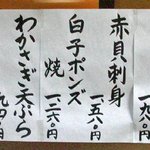 赤貝刺身
一、五八〇円
白子ポンズ
焼
一、二六〇円
わかさぎ天ぷら